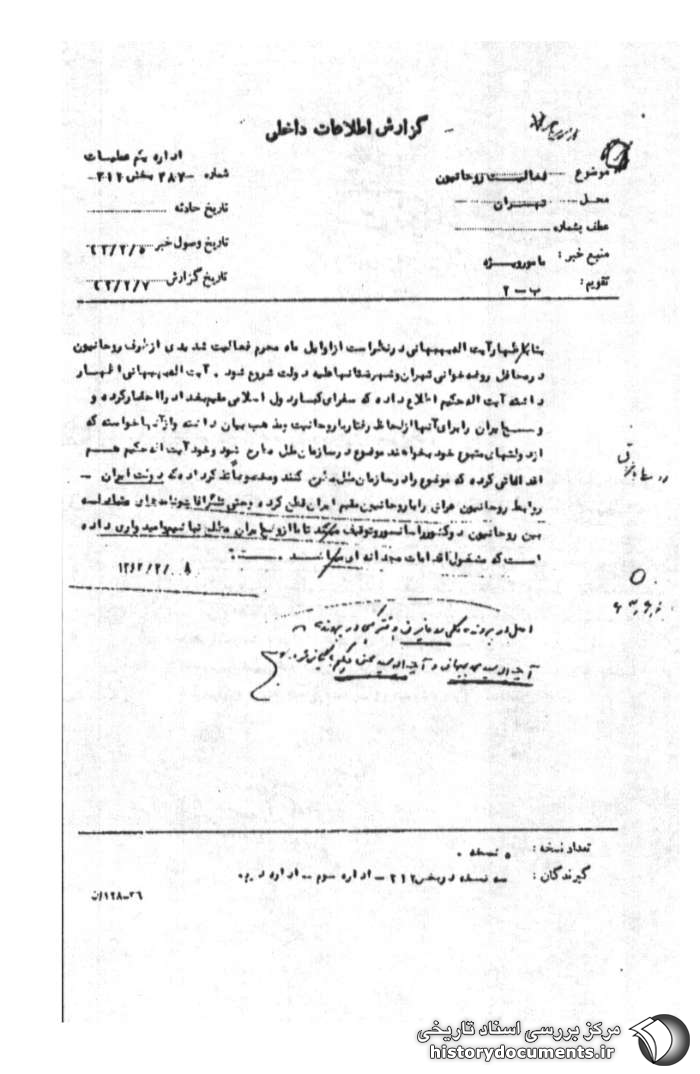 گزارش اطلاعات داخلی
موضوع فعالیت روحانیون
محل تهران
عطف بشماره
منبع خبر : مامور ویژه
تقویم : ب - ۲
اداره یکم عملیات
شماره ۲۸۷ بخش ۳۱۲
تاریخ حادثه
تاریخ وصول خبر ۴۲/۲/۵
تاریخ گزارش ۴۲/۲/۷
بنا باظهار آیت اله بهبهانی در نظر است از اوایل ماه محرم فعالیت شدیدی از طرف روحانیون
در محافل روضه خوانی تهران و شهرستانها علیه دولت شروع شود . آیت اله بهبهانی اظهار
داشته آیت اله حکیم اطلاع داده که سفرای کبار دول اسلامی مقیم بغداد را احضار کرده و
وضع ایران را برای آنها از لحاظ رفتار با روحانیت و مذهب بیان داشته و از آنها خواسته که
از دولتهای متبوع خود بخواهند موضوع در سازمان ملل مطرح شود و خود آیت اله حکیم هم
اقداماتی کرده که موضوع را در سازمان ملل مطرح کنند و مخصوصاً تذکر داده که دولت ایران -
روابط روحانیون عراق را با روحانیون مقیم ایران قطع کرده و حتی تلگرافات و نامه های متبادله
بین روحانیون دو کشور را سانسور و توقیف میکند تا ما از وضع ایران مطلع نباشیم و امیدواری داده
است که مشغول اقدامات مجدانه ای میباشد .
۱۳۴۲/۲/۰۰۸
اصل در پرونده
آیت اله سید محمد بهبهانی و آیت اله سید محسن حکیم
تعداد نسخه : ۵ نسخه .
گیرندگان : سه نسخه در بخش ۳۱۲ - اداره سوم - اداره دهم.
۳۶-۱۲۸/ن
مرکز بررسی اسناد تاریخی
historydocuments.ir